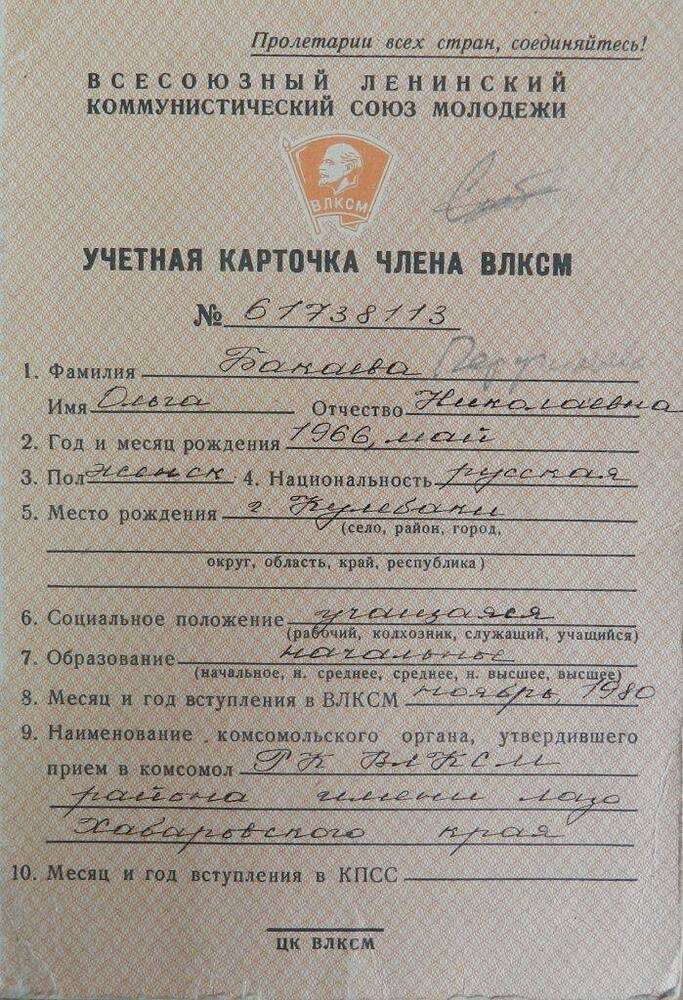 Пролетарии всех стран, соединяйтесь!
ВСЕСОЮЗНЫЙ ЛЕНИНСКИЙ
КОММУНИСТИЧЕСКИЙ СОЮЗ МОЛОДЕЖИ
ВЛКСМ
УЧЕТНАЯ КАРТОЧКА ЧЛЕНА ВЛКСМ
№ 61738113
1. Фамилия Бакаева
Имя Ольга Отчество Николаевна
2. Год и месяц рождения 1966, май
3. Пол женск. 4. Национальность русская
5. Место рождения г. Кулебаки
(село, район, город,
округ, область, край, республика)
6. Социальное положение учащаяся
(рабочий, колхозник, служащий, учащийся)
7. Образование начальное
(начальное, н. среднее, среднее, н. высшее, высшее)
8. Месяц и год вступления в ВЛКСМ ноябрь, 1980
9. Наименование комсомольского органа, утвердившего
прием в комсомол РК ВЛКСМ
района имени лазо
Хабаровского края
10. Месяц и год вступления в КПСС
ЦК ВЛКСМ